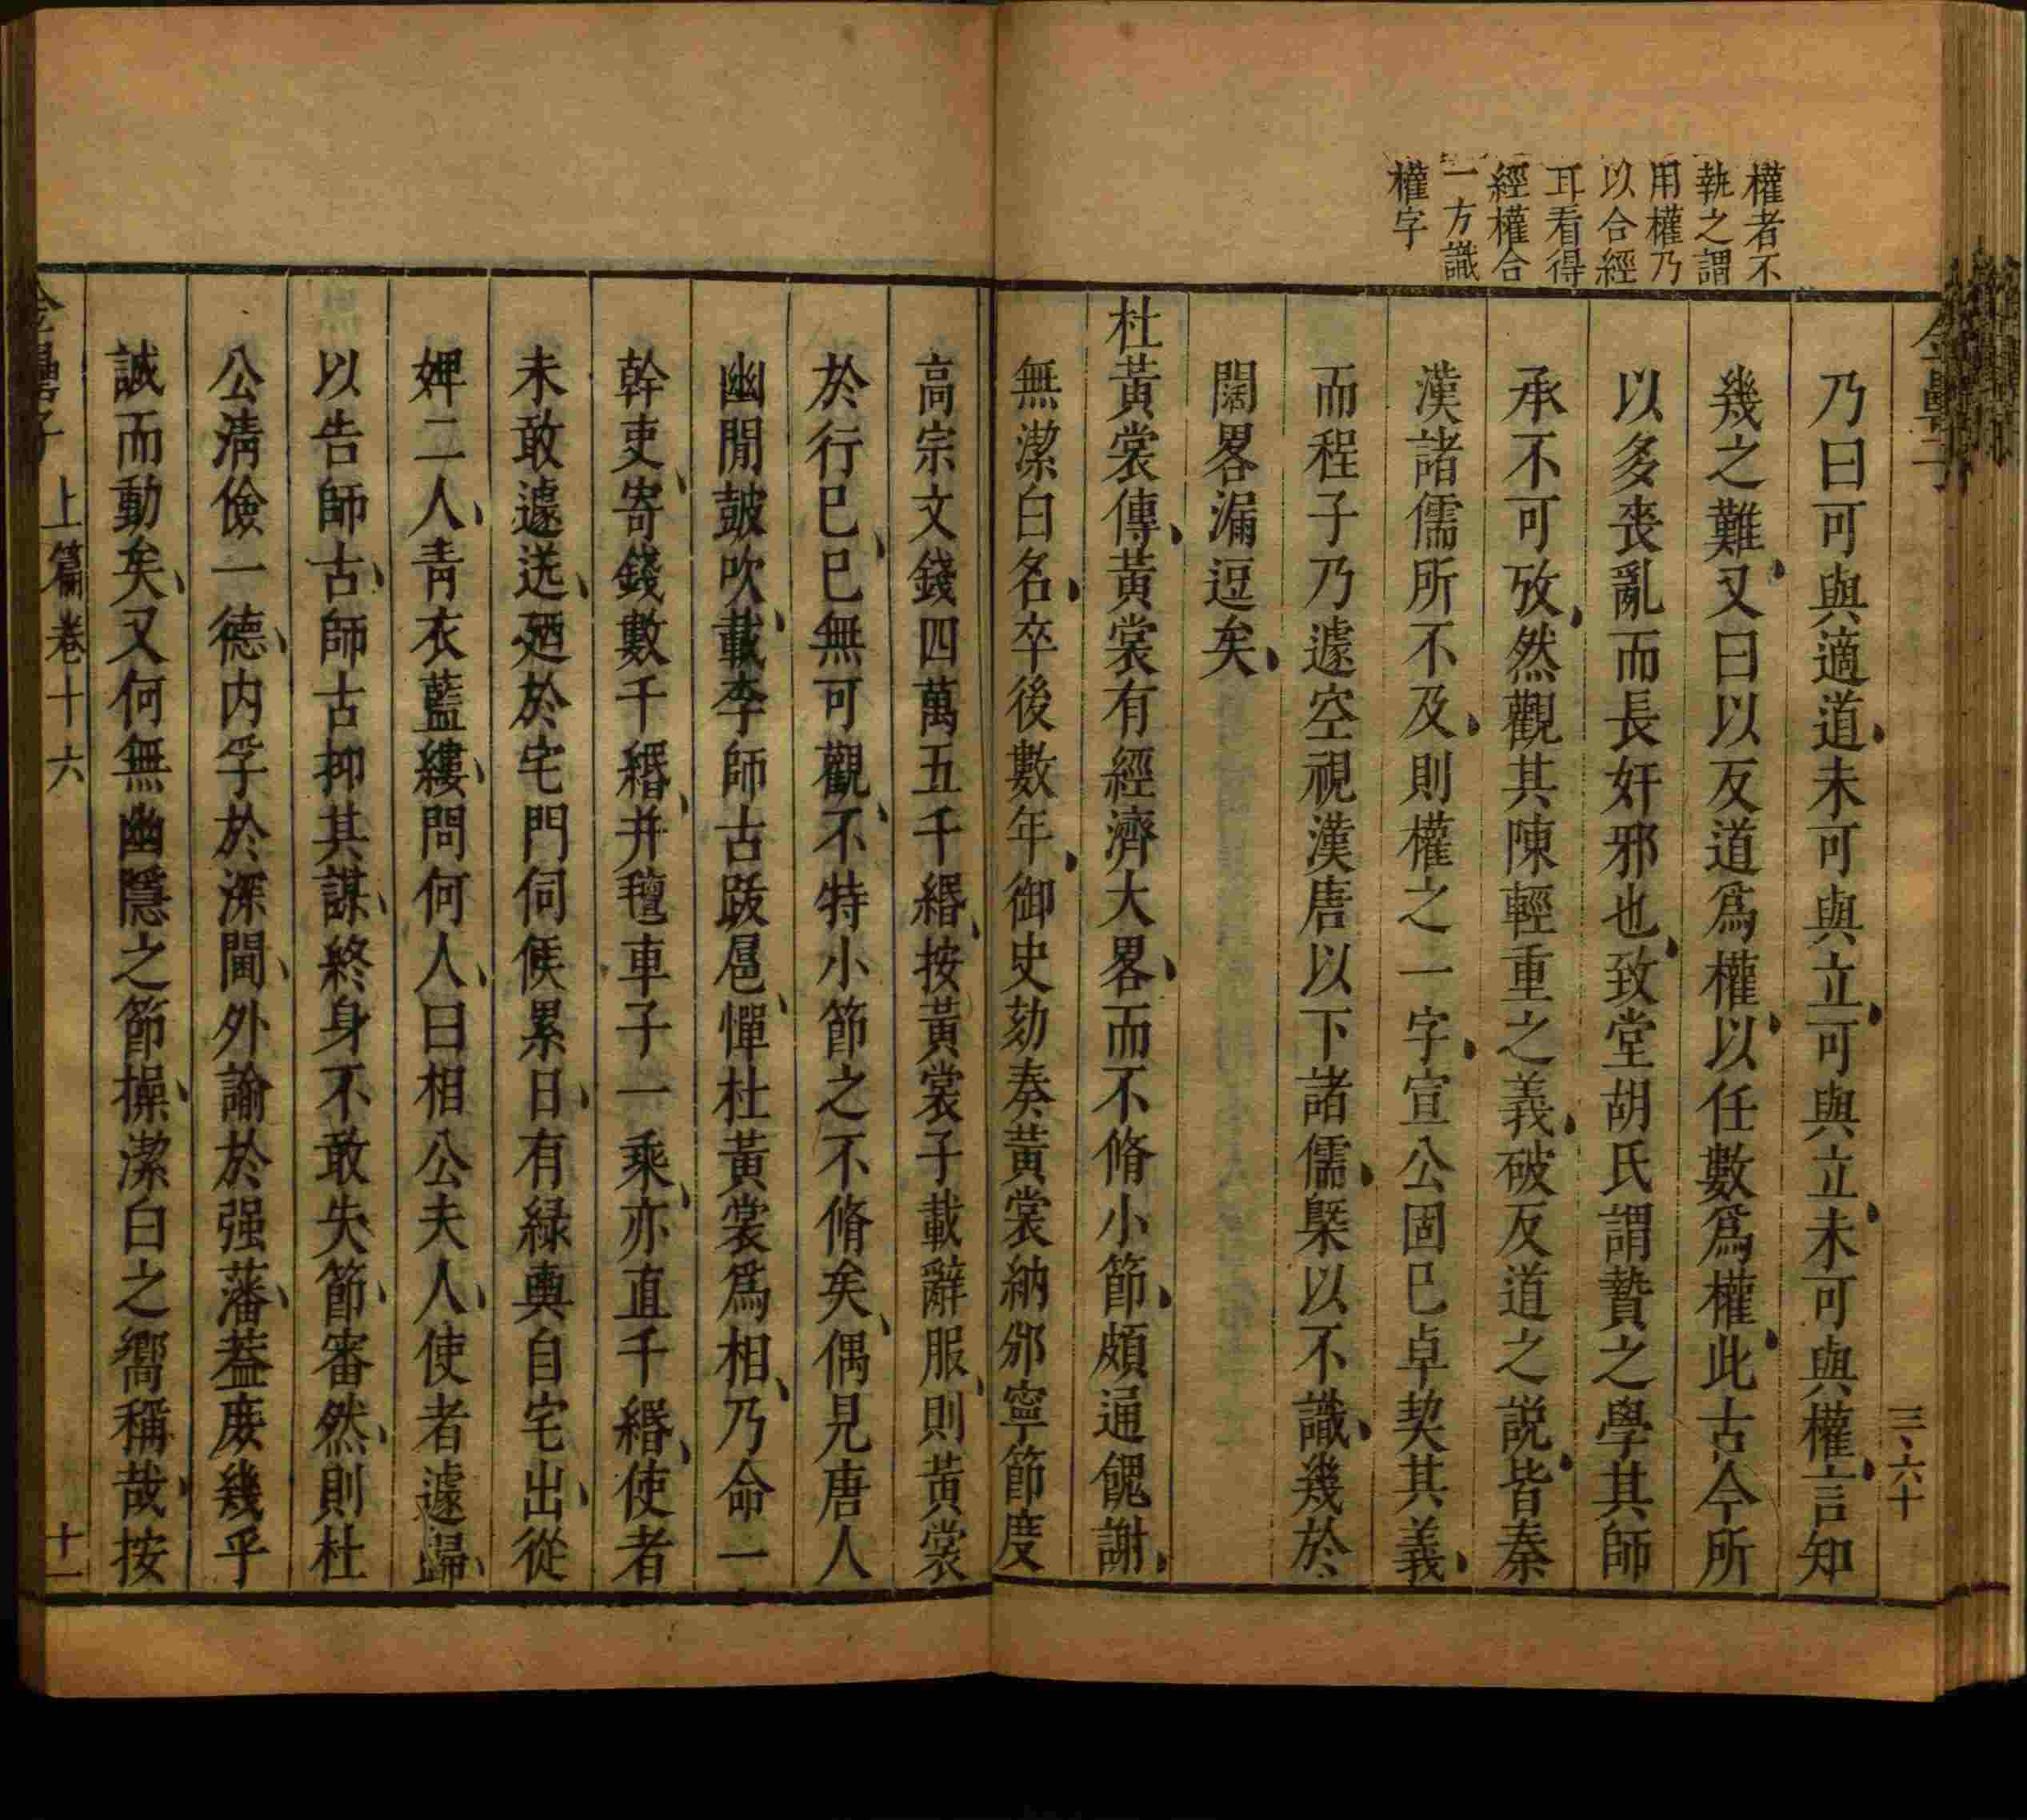 權者不
執之謂
用權乃
以合經
耳看得
經權合
一方識
權字
三六十
乃曰可與適道未可與立可與立未可與權言知
幾之難又曰以反道爲權以任數爲權此古今所
以多喪亂而長奸邪也致堂胡氏謂贄之學其師
承不可攷然觀其陳輕重之義破反道之説皆秦
漢諸儒所不及則權之一字宣公固巳卓契其義
而程子乃遽空視漢唐以下諸儒槩以不識幾於
闊畧漏逗矣
杜黃裳傳黃裳有經濟大畧而不脩小節頗通餽謝
無潔白名卒後數年御史劾奏黃裳納邠寧節度
高宗文錢四萬五千緡按黃裳子載辭服則黃裳
於行巳巳無可觀不特小節之不脩矣偶見唐人
幽閒鼓吹載李師古跋扈憚杜黃裳爲相乃命一
幹吏寄錢數千緡并氊車子一乘亦直千緡使者
未敢遽送廼於宅門伺候累日有緑輿自宅出從
婢二人青衣藍縷問何人曰相公夫人使者遽歸
以告師古師古抑其謀終身不敢失節審然則杜
公清儉一德内孚於深閫外諭於强藩葢庶幾乎
誠而動矣又何無幽隱之節操潔白之嚮稱哉按
金罍子 上篇卷十六 十一